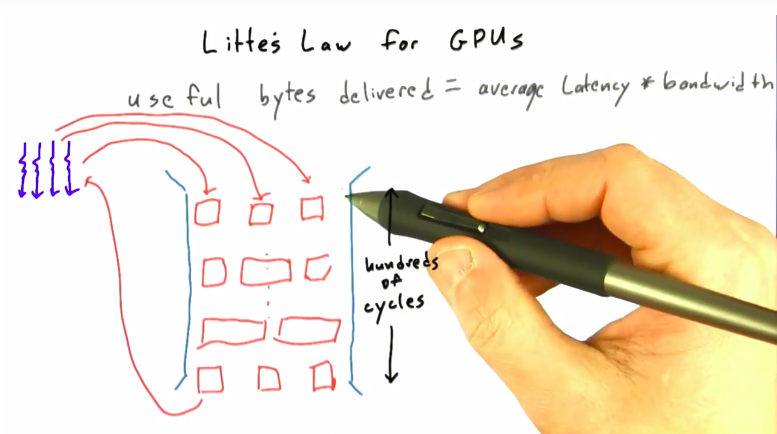 Litte's Law for GPUs
useful bytes delivered = average latency * bandwidth
hundreds
of
cycles